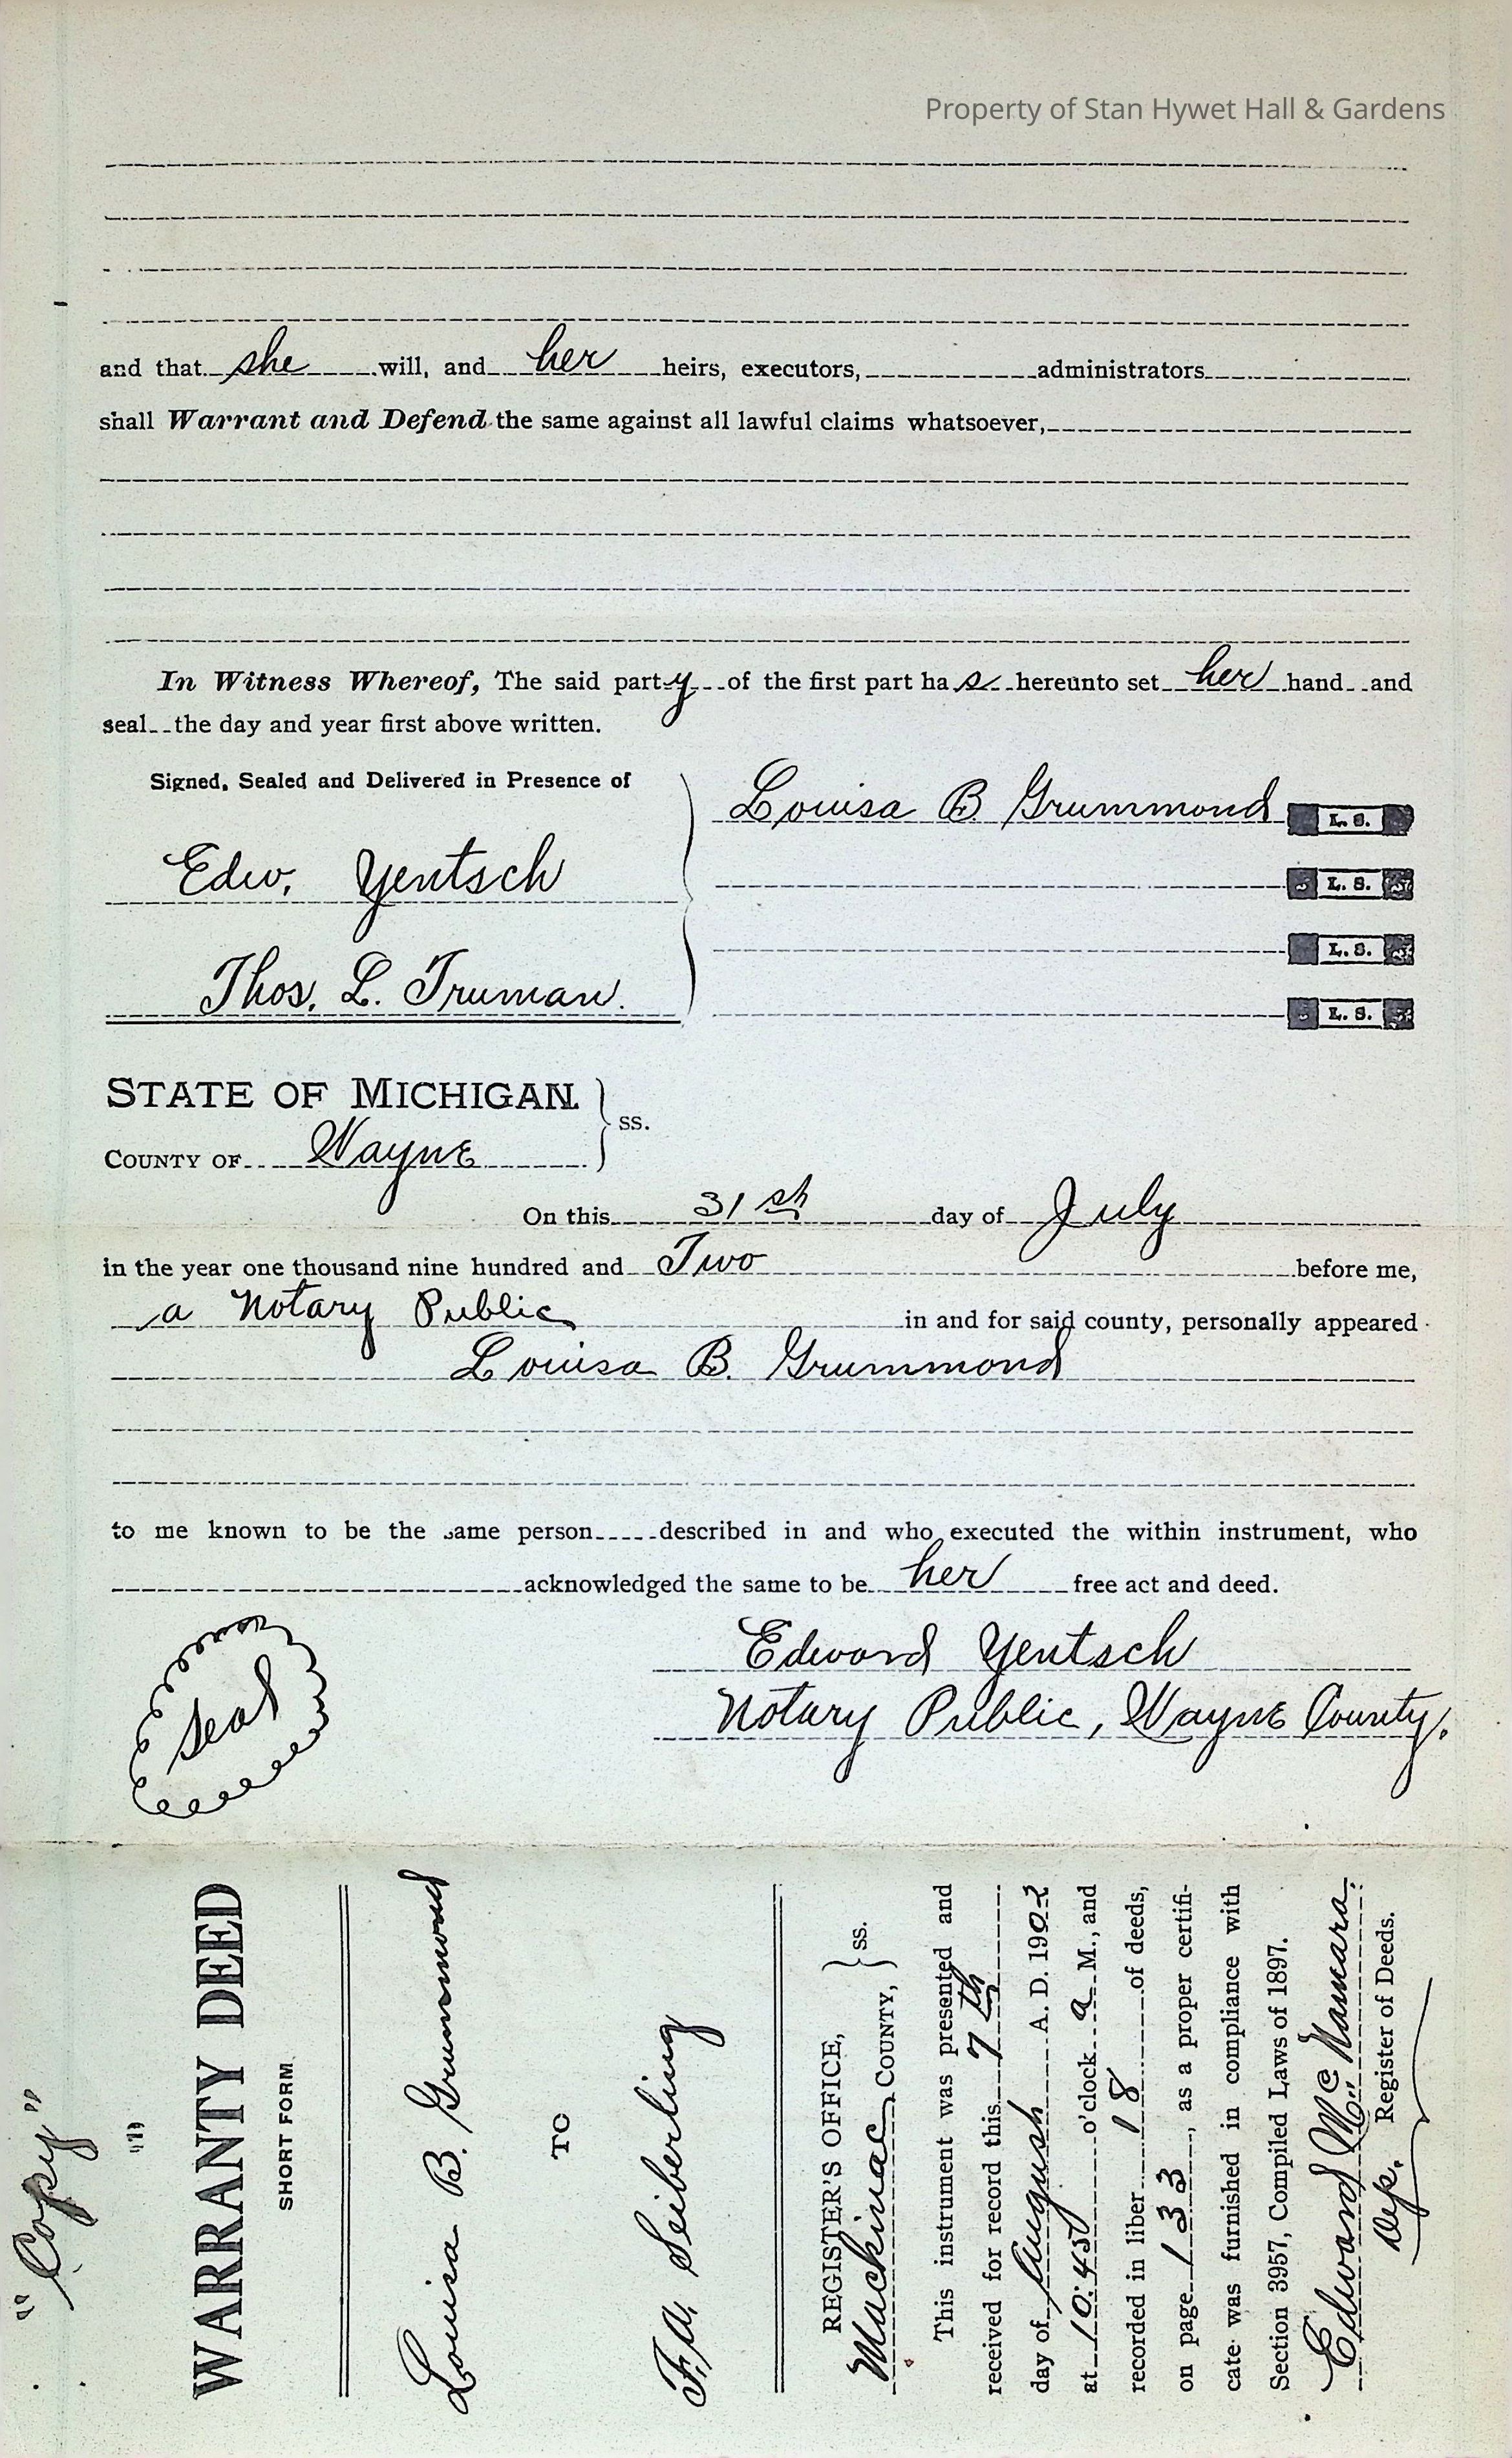 Property of Stan Hywet Hall & Gardens
and that she will, and her heirs, executors, administrators
shall Warrant and Defend the same against all lawful claims whatsoever,
In Witness Whereof, The said party of the first part has hereunto set her hand and
seal the day and year first above written.
Signed, Sealed and Delivered in Presence of
Louisa B Grummond L. S.
Edw. Yentsch
L. S.
Thos. L. Truman.
L. S.
L. S.
STATE OF MICHIGAN
COUNTY OF Wayne ss.
On this 31st day of July
in the year one thousand nine hundred and Two before me,
a Notary Public in and for said county, personally appeared
Louisa B. Grummond
to me known to be the same person described in and who executed the within instrument, who
acknowledged the same to be her free act and deed.
Seal
Edward Yentsch
Notary Public, Wayne County.
"Copy"
WARRANTY DEED
SHORT FORM
Louisa B. Grummond
TO
F. A. Seiberling
REGISTER'S OFFICE,
Mackinac COUNTY, ss.
This instrument was presented and
received for record this 7th
day of August A. D. 1902
at 10:45 o'clock a M., and
recorded in liber 18 of deeds,
on page 133, as a proper certifi-
cate was furnished in compliance with
Section 3957, Compiled Laws of 1897.
Edward McNamara.
Dep. Register of Deeds.